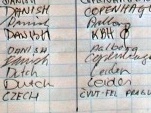 DANISH COPENHAGE
Danish Aalborg
DANISH KBH Ø
DANISH Aalborg
Danish Copenhagen
Dutch Leiden
Dutch Leiden
CZECH